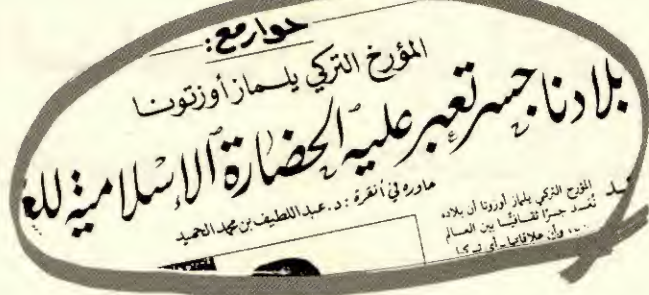 حوار مع:
المؤرخ التركي يلماز أوزتونا
بلادنا جسر تعبر عليه الحضارة الإسلامية
حاوره في أنقرة: د. عبد اللطيف بن محمد الحميد
المؤرخ التركي يلماز أوزتونا أن بلاده
تُعَد جسرًا ثقافيًّا بين العالم
وأن علاقاتها - أي تركيا